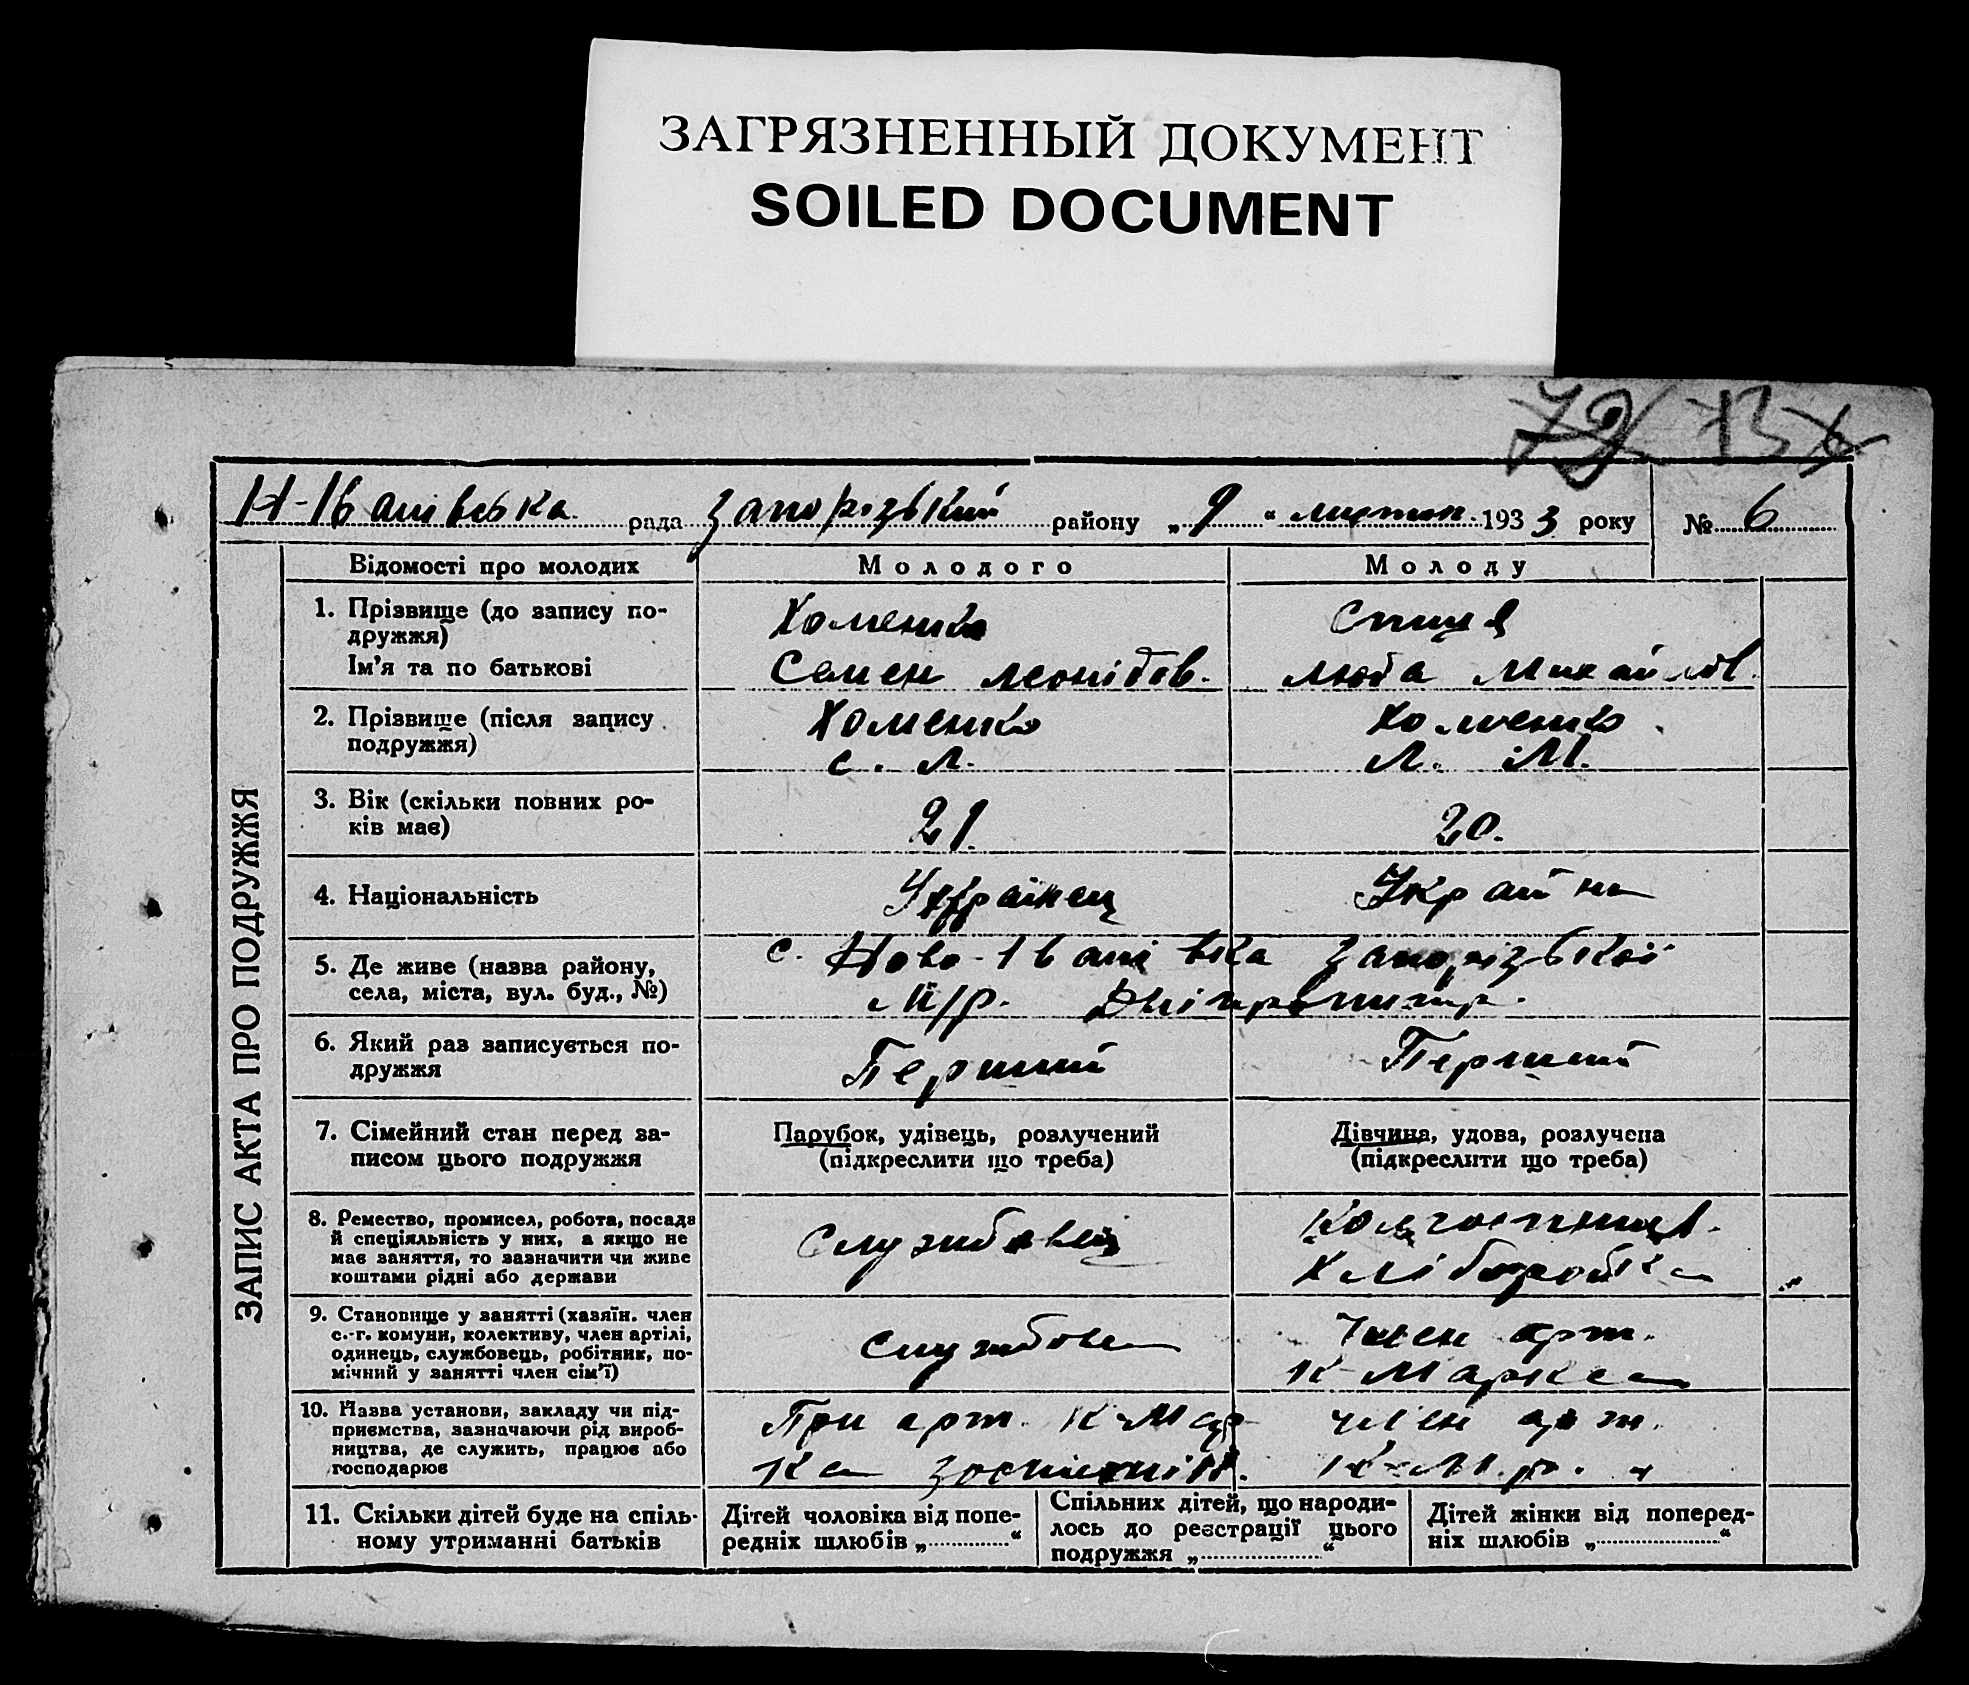 ЗАГРЯЗНЕННЫЙ ДОКУМЕНТ
SOILED DOCUMENT
Н-Іванівська рада запорізький району „9“ 1933 року № 6
ЗАПИС АКТА ПРО ПОДРУЖЖЯ
Відомості про молодих Молодого Молоду
1. Прізвище (до запису по-
дружжя)
Хоменко
Ім'я та по батькові
Семен Леонідов. Люба Михайлов.
2. Прізвище (після запису
подружжя)
Хоменко Хоменко
С. Л. Л. М.
3. Вік (скільки повних ро-
ків має)
21. 20.
4. Національність
Українець Україн ка
5. Де живе (назва району,
села, міста, вул. буд., №)
с. Ново-Іванівка Запорізької
м/р. Дніпропетр.
6. Який раз записується по-
дружжя
Перший Перший
7. Сімейний стан перед за-
писом цього подружжя
Парубок, удівець, розлучений
(підкреслити що треба)
Дівчина, удова, розлучена
(підкреслити що треба)
8. Ремество, промисел, робота, посада
й спеціяльність у них, а якщо не
має заняття, то зазначити чи живе
коштами рідні або держави
Службовець
Колгоспниця.
Хліборобка
9. Становище у занятті (хазяїн. член
с.-г. комуни, колективу, член артілі,
одинець, службовець, робітник, по-
мічний у занятті член сім'ї)
Службове
Член арт.
К-Маркса
10. Назва установи, закладу чи під-
приємства, зазначаючи рід вироб-
ництва, де служить, працює або
господарює
При арт. К-Мар
Член арт.
К-М.р.
11. Скільки дітей буде на спіль-
ному утриманні батьків
Дітей чоловіка від попе-
редніх шлюбів „ “
Спільних дітей, що народи-
лось до реєстрації цього
подружжя „ “
Дітей жінки від поперед-
ніх шлюбів „ “